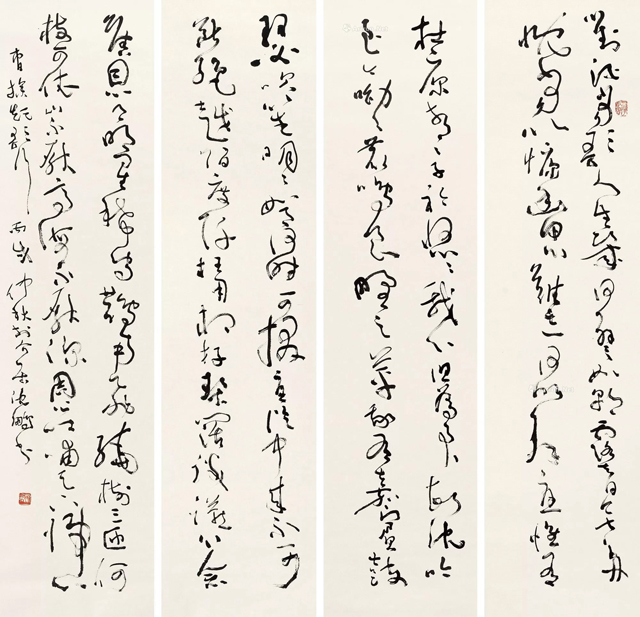 對酒當歌人生幾何譬如朝露去日苦多
慨當以慷幽思難忘何以解憂惟有
杜康青々子衿悠々我心但爲君故沈吟
至今呦々鹿鳴食野之苹我有嘉賓鼓
瑟吹笙明々如月何時可掇憂從中來不可
斷絕越陌度阡枉用相存契闊談讌心念
舊恩月明星稀烏鵲南飛繞樹三匝何
枝可依山不厭高海不厭深周公吐哺天下歸心
曹操短歌行 丙戌仲秋於介居沈鵬書